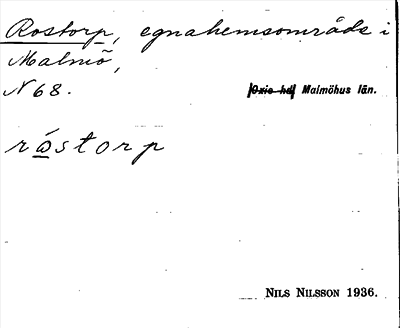 Rostorp, egnahemsområde i
Malmö,
N 68. Oxie hd Malmöhus län.
ròstorp
NILS NILSSON 1936.